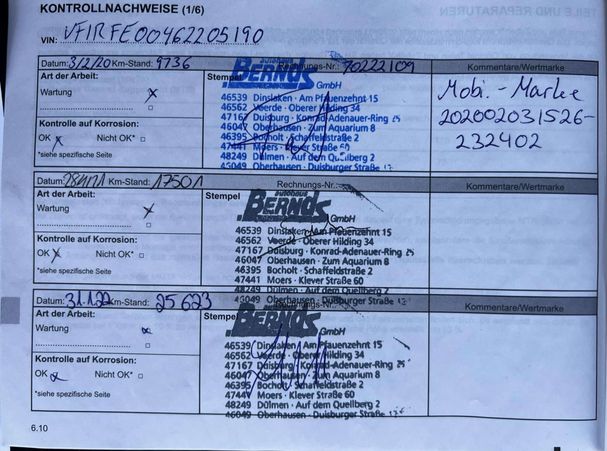 KONTROLLNACHWEISE (1/6)
VIN: VF1RFE00462205190
Datum: 3/2/20 Km-Stand: 9736 Rechnungs-Nr.: 70222109 Kommentare/Wertmarke
Art der Arbeit: Stempel
Wartung x
Kontrolle auf Korrosion:
OK x Nicht OK* □
*siehe spezifische Seite
autohaus
BERNDS GmbH
46539 Dinslaken · Am Pfauenzehnt 15
46562 Voerde · Oberer Hilding 34
47167 Duisburg · Konrad-Adenauer-Ring
46047 Oberhausen · Zum Aquarium 8
46395 Bocholt · Schaffeldstraße 2
47441 Moers · Klever Straße 60
48249 Dülmen · Auf dem Quellberg 2
46049 Oberhausen · Duisburger Straße
Mobi. - Marke
202002031526-
232402
Datum: Km-Stand: 17501 Rechnungs-Nr.: Kommentare/Wertmarke
Art der Arbeit: Stempel
Wartung x
Kontrolle auf Korrosion:
OK x Nicht OK* □
*siehe spezifische Seite
autohaus
BERNDS GmbH
46539 Dinslaken · Am Pfauenzehnt 15
46562 Voerde · Oberer Hilding 34
47167 Duisburg · Konrad-Adenauer-Ring
46047 Oberhausen · Zum Aquarium 8
46395 Bocholt · Schaffeldstraße 2
47441 Moers · Klever Straße 60
48249 Dülmen · Auf dem Quellberg 2
46049 Oberhausen · Duisburger Straße
Datum: 31.1.22 Km-Stand: 25623 Rechnungs-Nr.: Kommentare/Wertmarke
Art der Arbeit: Stempel
Wartung x
Kontrolle auf Korrosion:
OK x Nicht OK* □
*siehe spezifische Seite
BERNDS GmbH
46539 Dinslaken · Am Pfauenzehnt 15
46562 Voerde · Oberer Hilding 34
47167 Duisburg · Konrad-Adenauer-Ring
46047 Oberhausen · Zum Aquarium 8
46395 Bocholt · Schaffeldstraße 2
47441 Moers · Klever Straße 60
48249 Dülmen · Auf dem Quellberg 2
46049 Oberhausen · Duisburger Straße
6.10